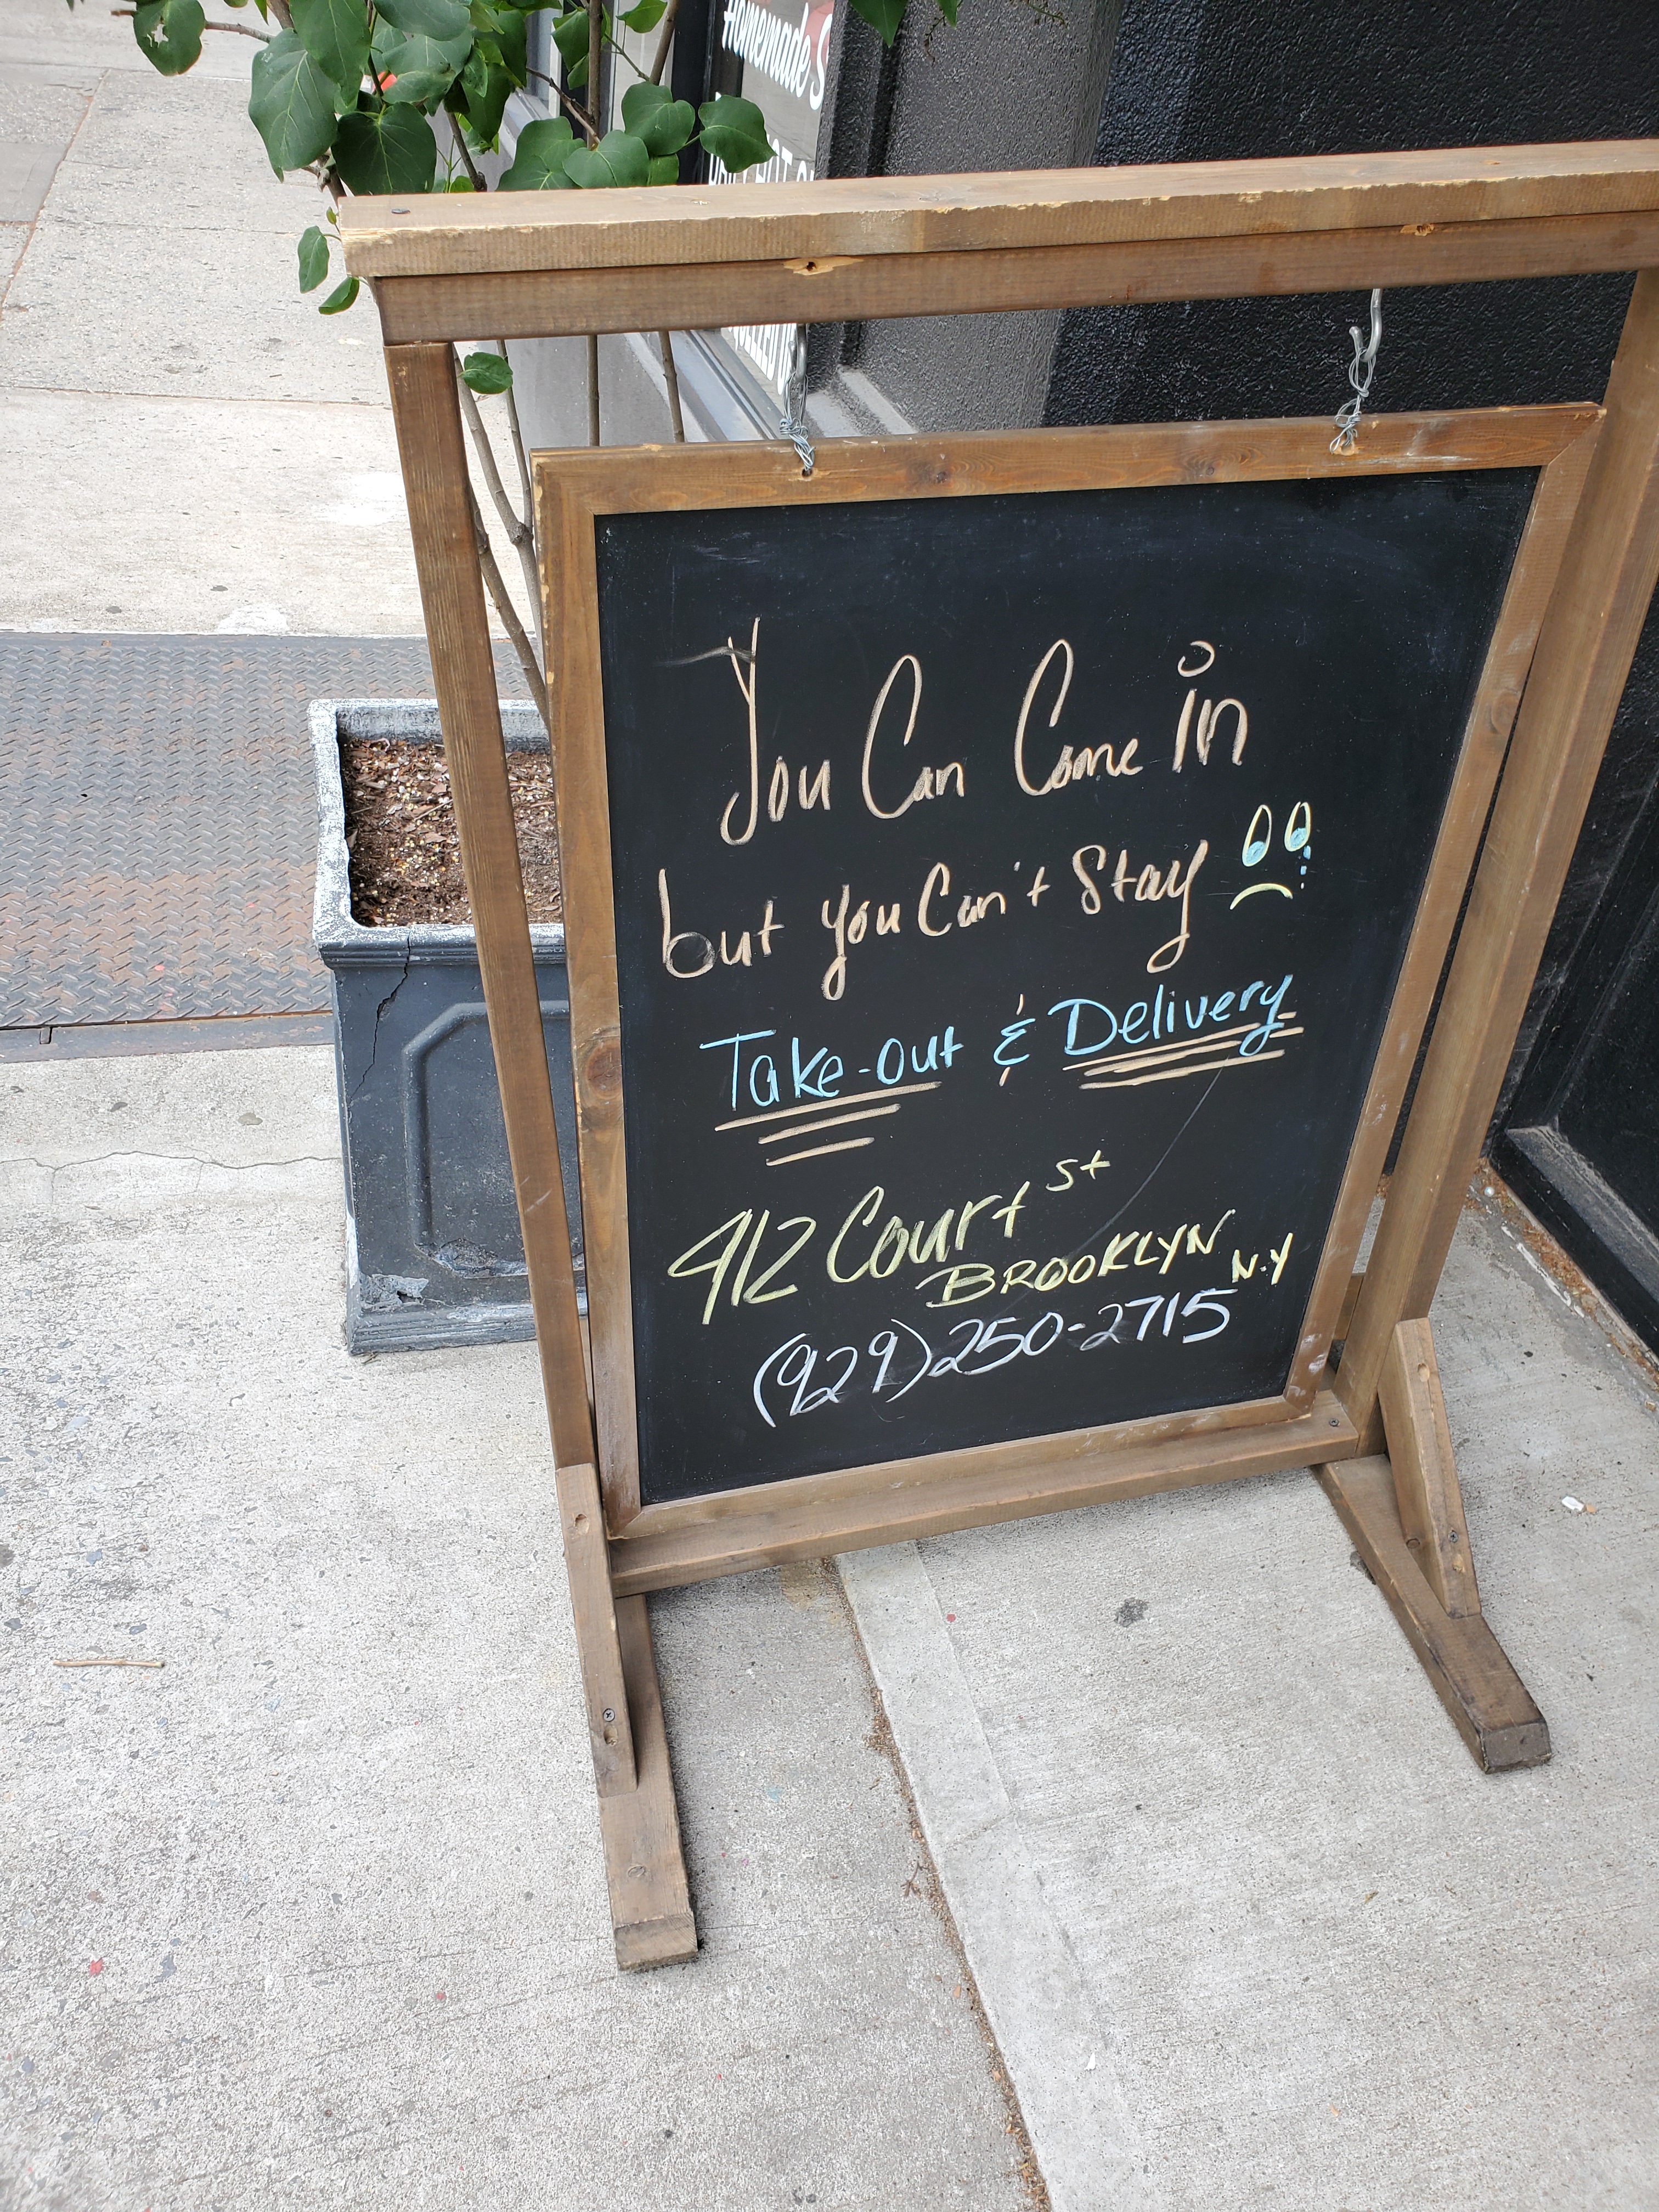 Homemade S
You Can Come in
but you Can't Stay
Take-out & Delivery
412 Court St
BROOKLYN N.Y
(929) 250-2715